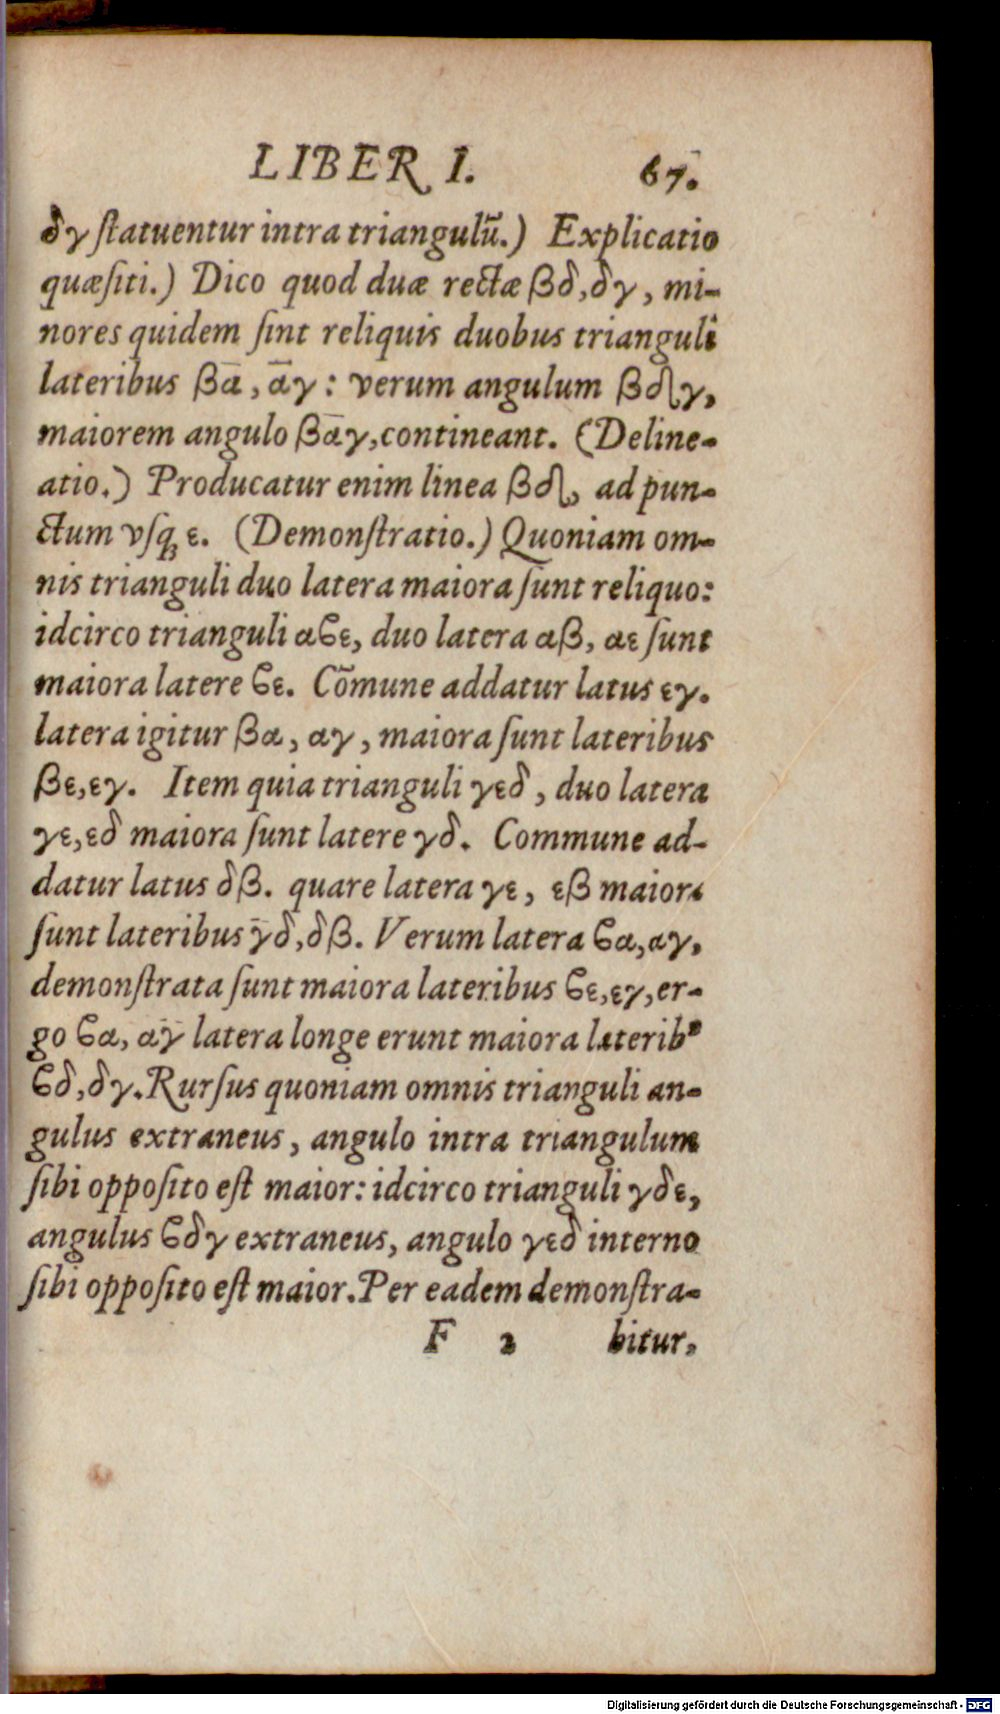 LIBER I. 67.
δγ ſtatuentur intra triangulū.) Explicatio
quæſiti.) Dico quod duæ rectæ βδ, δγ, mi-
nores quidem ſint reliquis duobus trianguli
lateribus βα, αγ: verum angulum βδγ,
maiorem angulo βαγ, contineant. (Deline-
atio.) Producatur enim linea βδ, ad pun-
ctum vſq; ε. (Demonſtratio.) Quoniam om-
nis trianguli duo latera maiora ſunt reliquo:
idcirco trianguli αϐε, duo latera αβ, αε ſunt
maiora latere ϐε. Cōmune addatur latus εγ.
latera igitur βα, αγ, maiora ſunt lateribus
βε, εγ. Item quia trianguli γεδ, duo latera
γε, εδ maiora ſunt latere γδ. Commune ad-
datur latus δβ. quare latera γε, εβ maiora
ſunt lateribus γδ, δβ. Verum latera ϐα, αγ,
demonſtrata ſunt maiora lateribus ϐε, εγ, er-
go ϐα, αγ latera longe erunt maiora laterib9
ϐδ, δγ. Rurſus quoniam omnis trianguli an-
gulus extraneus, angulo intra triangulum
ſibi oppoſito eſt maior: idcirco trianguli γδε,
angulus ϐδγ extraneus, angulo γεδ interno
ſibi oppoſito eſt maior. Per eadem demonſtra-
F 2 bitur,
Digitalisierung gefördert durch die Deutsche Forschungsgemeinschaft - DFG